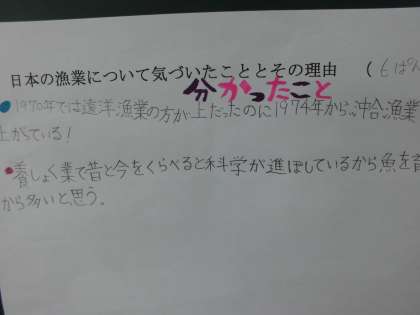 日本の漁業について気づいたこととその理由 ( 6はん
分かったこと
●1970年では遠洋漁業の方が上だったのに1974年から、沖合漁業
上がている!
●養しょく業で昔と今をくらべると科学が進ぽしているから魚を育
から多いと思う。